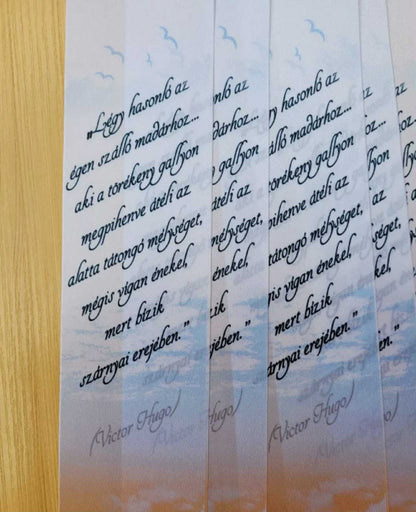 „Légy hasonló az
égen szálló madárhoz...
aki a törékeny gallyon
megpihenve átéli az
alatta tátongó mélységet,
mégis vígan énekel,
mert bízik
szárnyai erejében.”
(Victor Hugo)
nló az
dárhoz...
gallyon
téli az
mélységet,
énekel,
zik
jében.”
Hugo)
gy hasonló az
álló madárhoz...
törékeny gallyon
pihenve átéli az
tátongó mélységet,
is vígan énekel,
mert bízik
árnyai erejében.”
(Victor Hugo)
az
oz...
yon
az
séget,
kel,
en.”